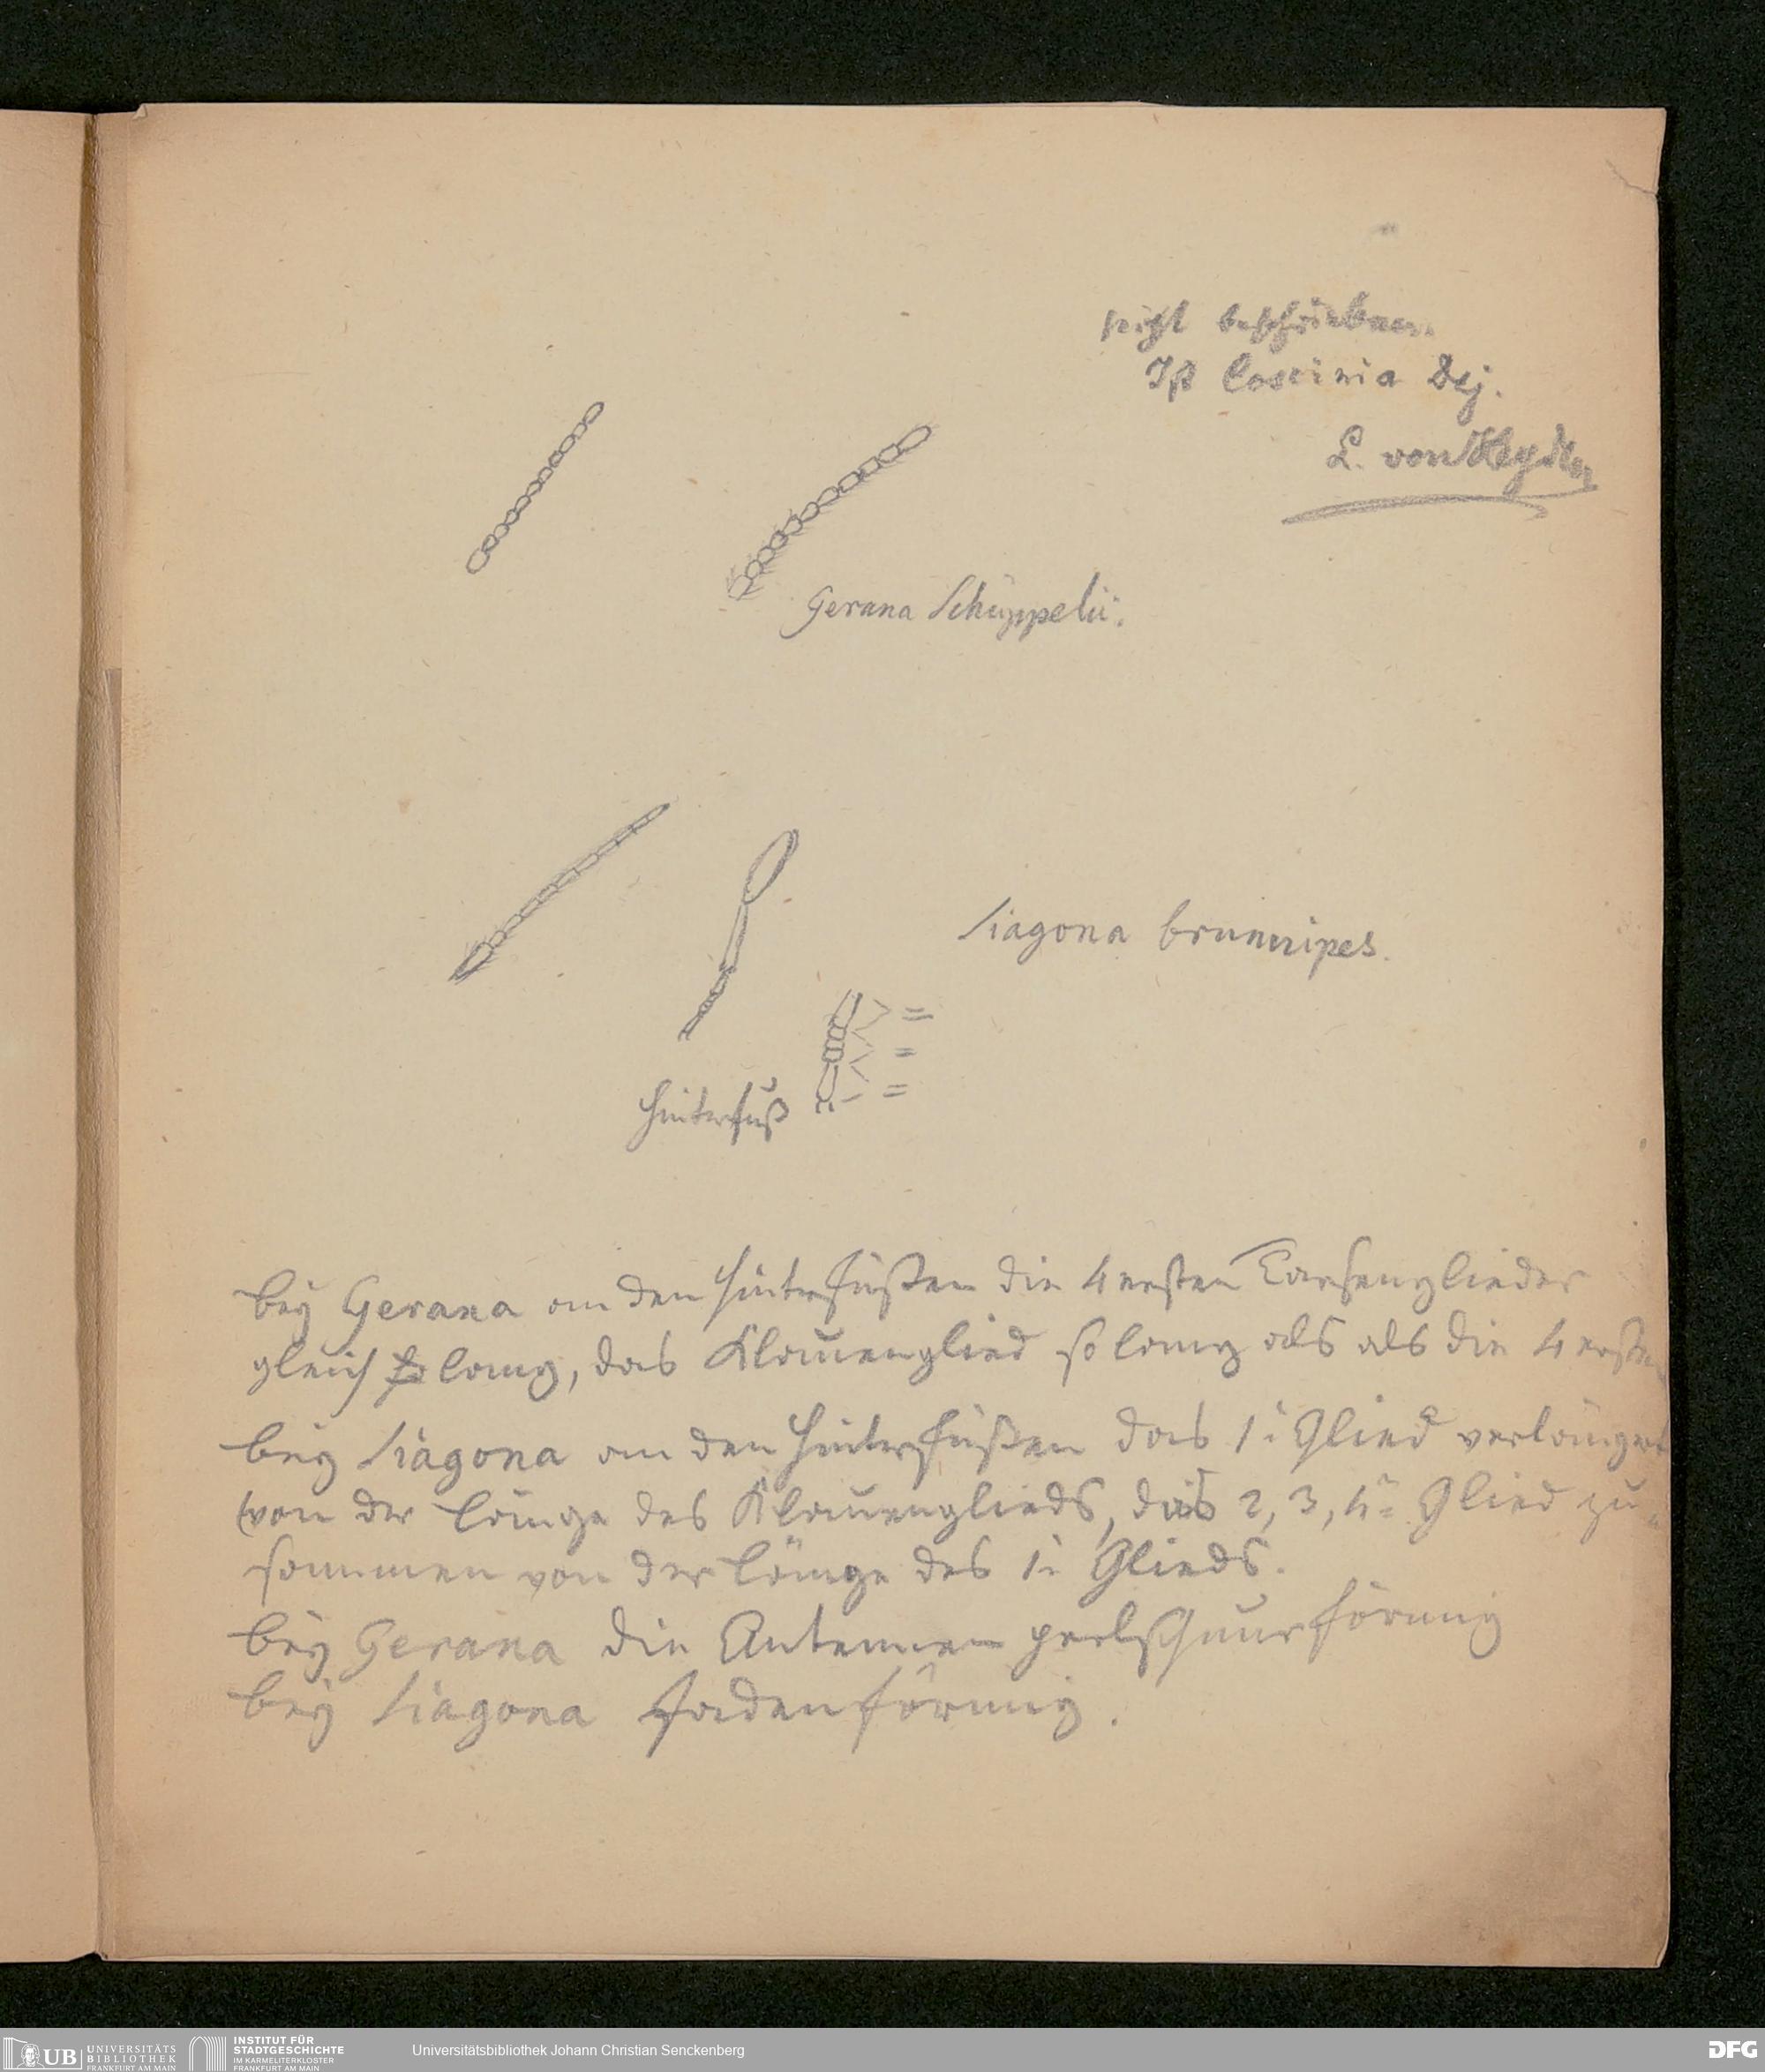 nicht beschrieben.
Ist Coscinia Dej.
L. von Heyden
Gerana Schüppelii.
Siagona brunnipes.
Hinterfuß
bey Gerana an den Hinterfüßen die 4 ersten Tarsenglieder
gleich lang, das Klauenglied so lang als als die 4 ersten
bey Siagona an den Hinterfüßen das 1te Glied verlängert
(von der Länge des Klauenglieds, das 2, 3, 4te Glied zu=
sammen von der Länge des 1t Glieds.
bey Gerana die Antennen perlschnurförmig
bey Siagona fadenförmig.
UB UNIVERSITÄTS
BIBLIOTHEK
FRANKFURT AM MAIN
INSTITUT FÜR
STADTGESCHICHTE
IM KARMELITERKLOSTER
FRANKFURT AM MAIN
Universitätsbibliothek Johann Christian Senckenberg
DFG